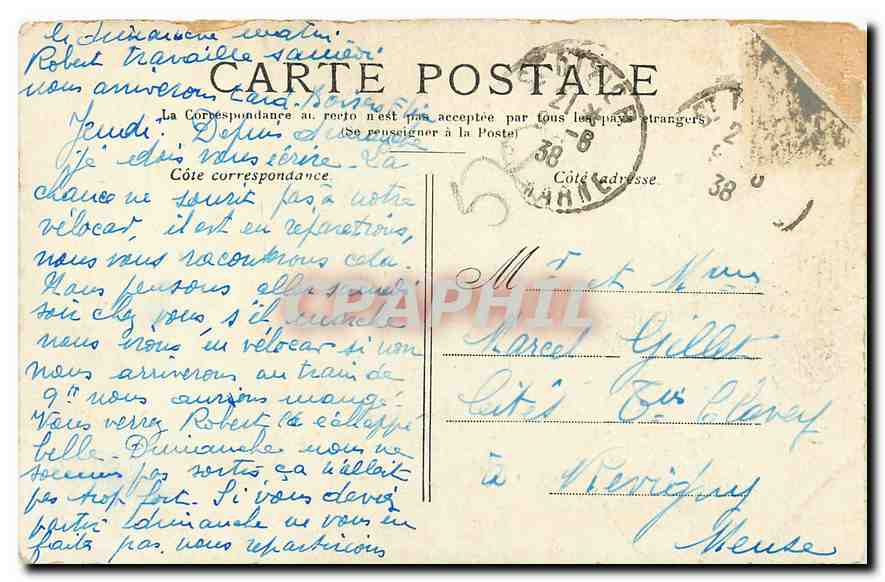 le dimanche matin
Robert travaille samedi
nous arriverons tard. Bons
CARTE POSTALE
La Correspondance au recto n'est pas acceptée par tous les pays étrangers
(Se renseigner à la Poste)
Jeudi. Depuis dimanche
je dois vous écrire. La
Côte correspondance.
chance ne sourit pas à notre
vélocar, il est en réparations,
nous vous raconterons cela.
Nous pensons aller samedi
soir chez vous, s'il marche
nous irons en vélocar si non
nous arriverons au train de
9h nous aurions mangé.
Vous verrez Robert l'a échappé
belle. Dimanche nous ne
sommes pas sortis ça n'allait
pas trop fort. Si vous deviez
partir dimanche ne vous en
faite pas, nous repartirions
52
21
8
38
MARNE
Côté adresse.
2
38
Mr et Mme
Marcel Gillet
Cités
à Revigny
Meuse
CPAPHIL